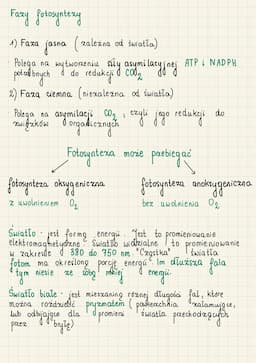 Fazy fotosyntezy
1) Faza jasna (zależna od światła)
Polega na wytworzeniu siły asymilacyjnej ATP i NADPH
potrzebnych do redukcji CO2
2) Faza ciemna (niezależna od światła)
Polega na asymilacji CO2, czyli jego redukcji do
związków organicznych
Fotosynteza może przebiegać
fotosynteza oksygeniczna fotosynteza anoksygeniczna
z uwolnieniem O2 bez uwolnienia O2
Światło - jest formą energii. Jest to promieniowanie
elektromagnetyczne. Światło widzialne to promieniowanie
w zakresie 380 do 750 nm. "Cząstka" światła
foton ma określoną porcję energii. Im dłuższa fala
tym niesie ze sobą mniej energii.
Światło białe - jest mieszaniną różnej długości fal, które
można rozdzielić pryzmatem (powierzchnia załamujące,
lub odbijające dla promieni światła przechodzących
przez bryłę)